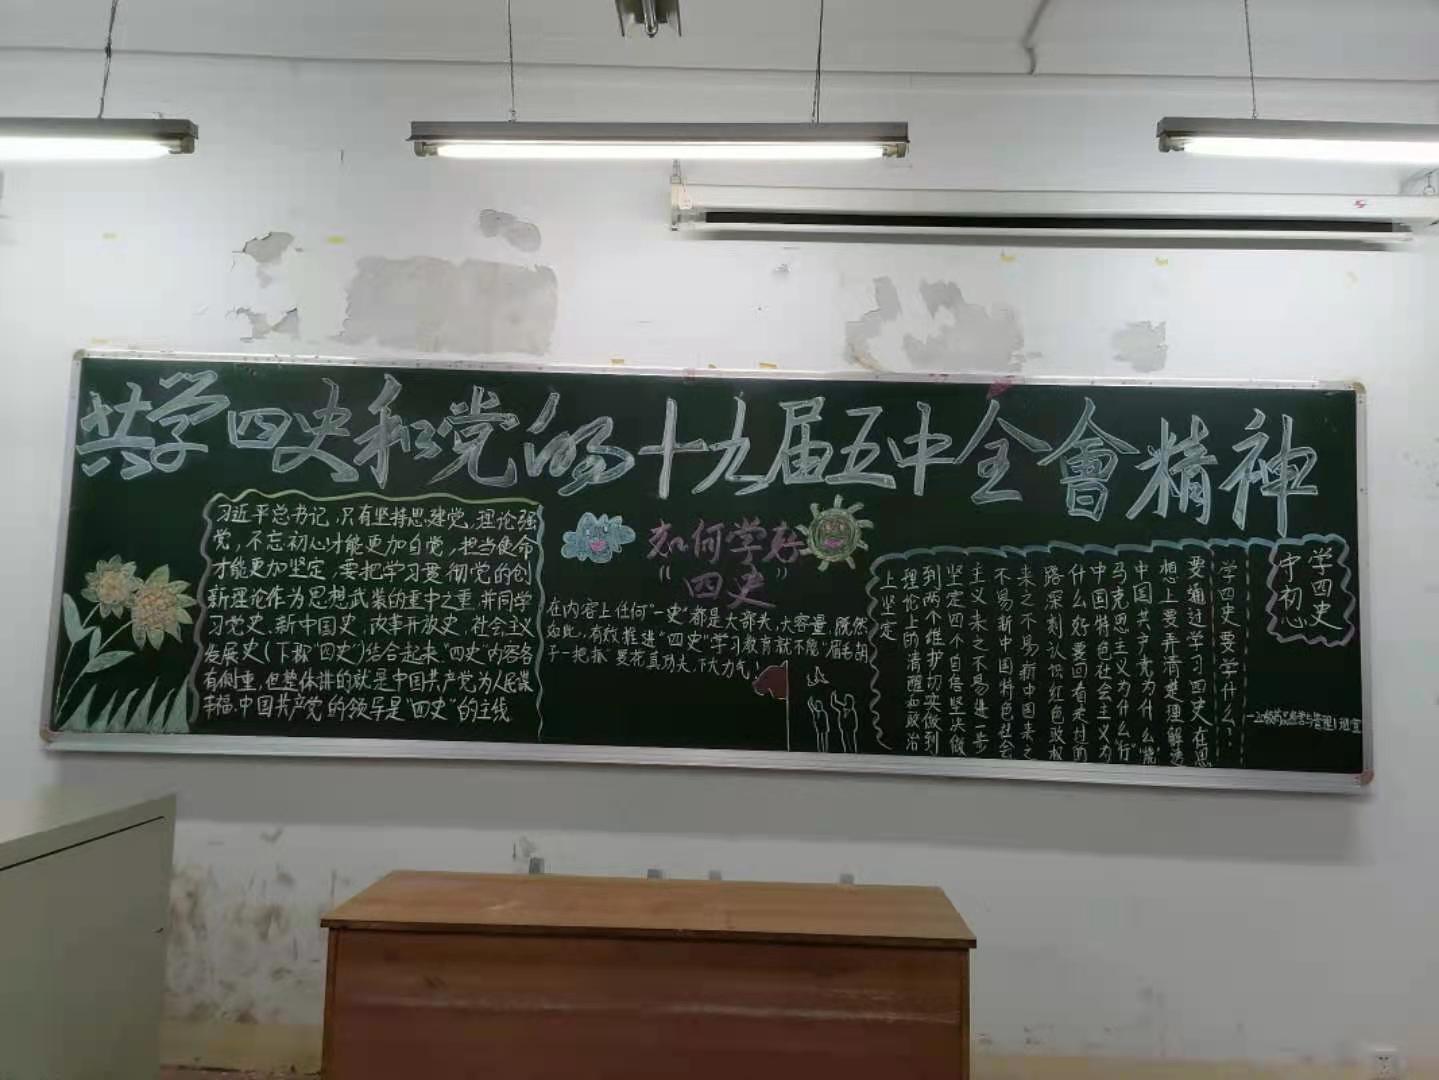 共学四史和党的十九届五中全會精神
习近平总书记,只有坚持思想建党,理论强
党,不忘初心才能更加自觉,担当使命
才能更加坚定,要把学习贯彻党的创
新理论作为思想武装的重中之重,并同学
习党史,新中国史,改革开放史,社会主义
发展史(下称"四史")结合起来."四史"内容各
有侧重,但整体讲的就是中国共产党为人民谋
幸福.中国共产党的领导是"四史"的主线
如何学好
"四史"
在内容上任何"一史"都是大部头、大容量,既然
如此,有效推进"四史"学习教育就不能"眉毛胡
子一把抓"要花真功夫、下大力气!
学四史
守初心
学四史要学什么?
要通过学习四史,在思
想上要弄清楚理解透
中国共产党为什么"能"
马克思主义为什么"行"
中国特色社会主义为
什么"好"要回看走过的
路深刻认识红色政权
来之不易新中国来之
不易新中国特色社会
主义来之不易进一步
坚定四个自信坚决做
到两个维护切实做到
理论上的清醒和政治
上坚定